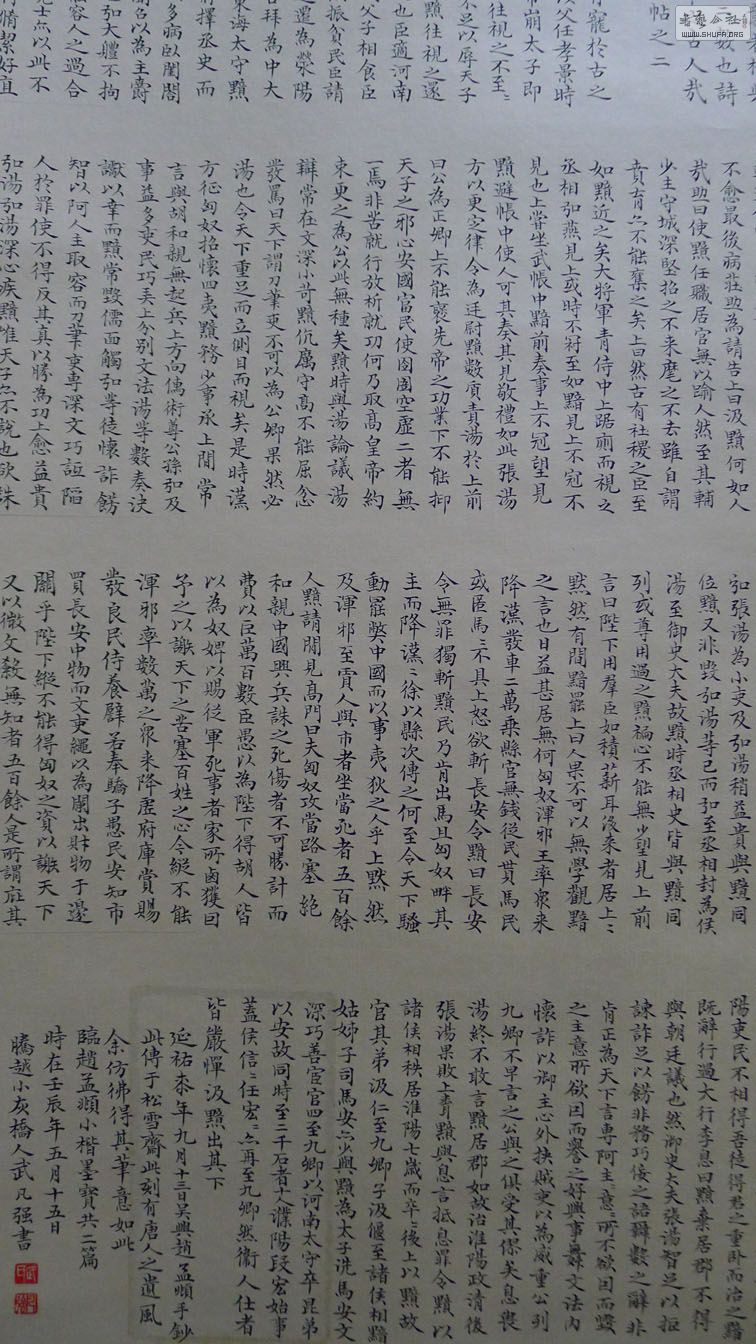 相與
數也詩
古人哉
帖之二
有寵於古之
父任孝景時
帝崩太子即
往視之不至〻
足以辱天子
黯往視之還
也臣過河南
父子相食臣
振貧民臣請
之遷為滎陽
召拜為中大
東海太守黯
擇丞史而
多病臥閨閤
召以為主爵
弘大體不拘
容人之過合
士亦以此不
行脩潔好直
不愈最後病莊助為請告上曰汲黯何如人
哉助曰使黯任職居官無以踰人然至其輔
少主守城深堅招之不来麾之不去雖自謂
賁育亦不能棄之矣上曰然古有社稷之臣至
如黯近之矣大將軍青侍中上踞廁而視之
丞相弘燕見上或時不冠至如黯見上不冠不
見也上甞坐武帳中黯前奏事上不冠望見
黯避帳中使人可其奏其見敬禮如此張湯
方以更定律令為廷尉黯數質責湯於上前
曰公為正卿上不能襃先帝之功業下不能抑
天子之邪心安國富民使囹圄空虛二者無
一焉非苦就行放析就功何乃取高皇帝約
束更之為公以此無種矣黯時與湯論議湯
辯常在文深小苛黯伉厲守高不能屈忿
發罵曰天下謂刀筆吏不可以為公卿果然必
湯也令天下重足而立側目而視矣是時漢
方征匈奴招懷四夷黯務少事承上閒常
言與胡和親無起兵上方向儒術尊公孫弘及
事益多吏民巧矣上分別文法湯等數奏決
讞以幸而黯常毀儒面觸弘等徒懷詐飾
智以阿人主取容而刀筆吏專深文巧詆陷
人於罪使不得反其真以勝為功上愈益貴
弘湯弘湯深心疾黯惟天子亦不說也欲誅
弘張湯為小吏及弘湯稍益貴與黯同
位黯又非毀弘湯等已而弘至丞相封為侯
湯至御史大夫故黯時丞相史皆與黯同
列或尊用過之黯褊心不能無少望見上前
言曰陛下用羣臣如積薪耳後来者居上〻
默然有間黯罷上曰人果不可以無學觀黯
之言也日益甚居無何匈奴渾邪王率眾来
降漢發車二萬乘縣官無錢從民貰馬民
或匿馬〻不具上怒欲斬長安令黯曰長安
令無罪獨斬黯民乃肯出馬且匈奴畔其
主而降漢〻徐以縣次傳之何至令天下騷
動罷獘中國而以事夷狄之人乎上默然
及渾邪至賈人與市者坐當死者五百餘
人黯請閒見高門曰夫匈奴攻當路塞絕
和親中國興兵誅之死傷者不可勝計而
費以巨萬百數臣愚以為陛下得胡人皆
以為奴婢以賜從軍死事者家所鹵獲因
予之以謝天下之苦塞百姓之心今縱不能
渾邪率數萬之眾来降虛府庫賞賜
發良民侍養譬若奉驕子愚民安知市
買長安中物而文吏繩以為闌出財物于邊
關乎陛下縱不能得匈奴之資以謝天下
又以微文殺無知者五百餘人是所謂庇其
陽吏民不相得吾徒得君之重臥而治之黯
既辭行過大行李息曰黯棄居郡不得
與朝廷議也然御史大夫張湯智足以拒
諫詐足以飾非務巧佞之語辯數之辭非
肯正為天下言專阿主意〻所不欲因而毀
之主意所欲因而譽之好興事舞文法內
懷詐以御主心外挾賊吏以為威重公列
九卿不早言之公與之俱受其僇矣息畏
湯終不敢言黯居郡如故治淮陽政清後
張湯果敗上聞黯與息言抵息罪令黯以
諸侯相秩居淮陽七歲而卒〻後上以黯故
官其弟汲仁至九卿子汲偃至諸侯相黯
姑姊子司馬安亦少與黯為太子洗馬安文
深巧善宦官四至九卿以河南太守卒昆弟
以安故同時至二千石者十人濮陽段宏始事
蓋侯信〻任宏〻亦再至九卿然衛人仕者
皆嚴憚汲黯出其下
延祐柒年九月十三日吳興趙孟頫手鈔
此傳于松雪齋此刻有唐人之遺風
余仿彿得其筆意如此
臨趙孟頫小楷墨寶共二篇
時在壬辰年五月十五日
騰越小灰橋人武凡强書
書藝公社
WWW.SHUFA.ORG